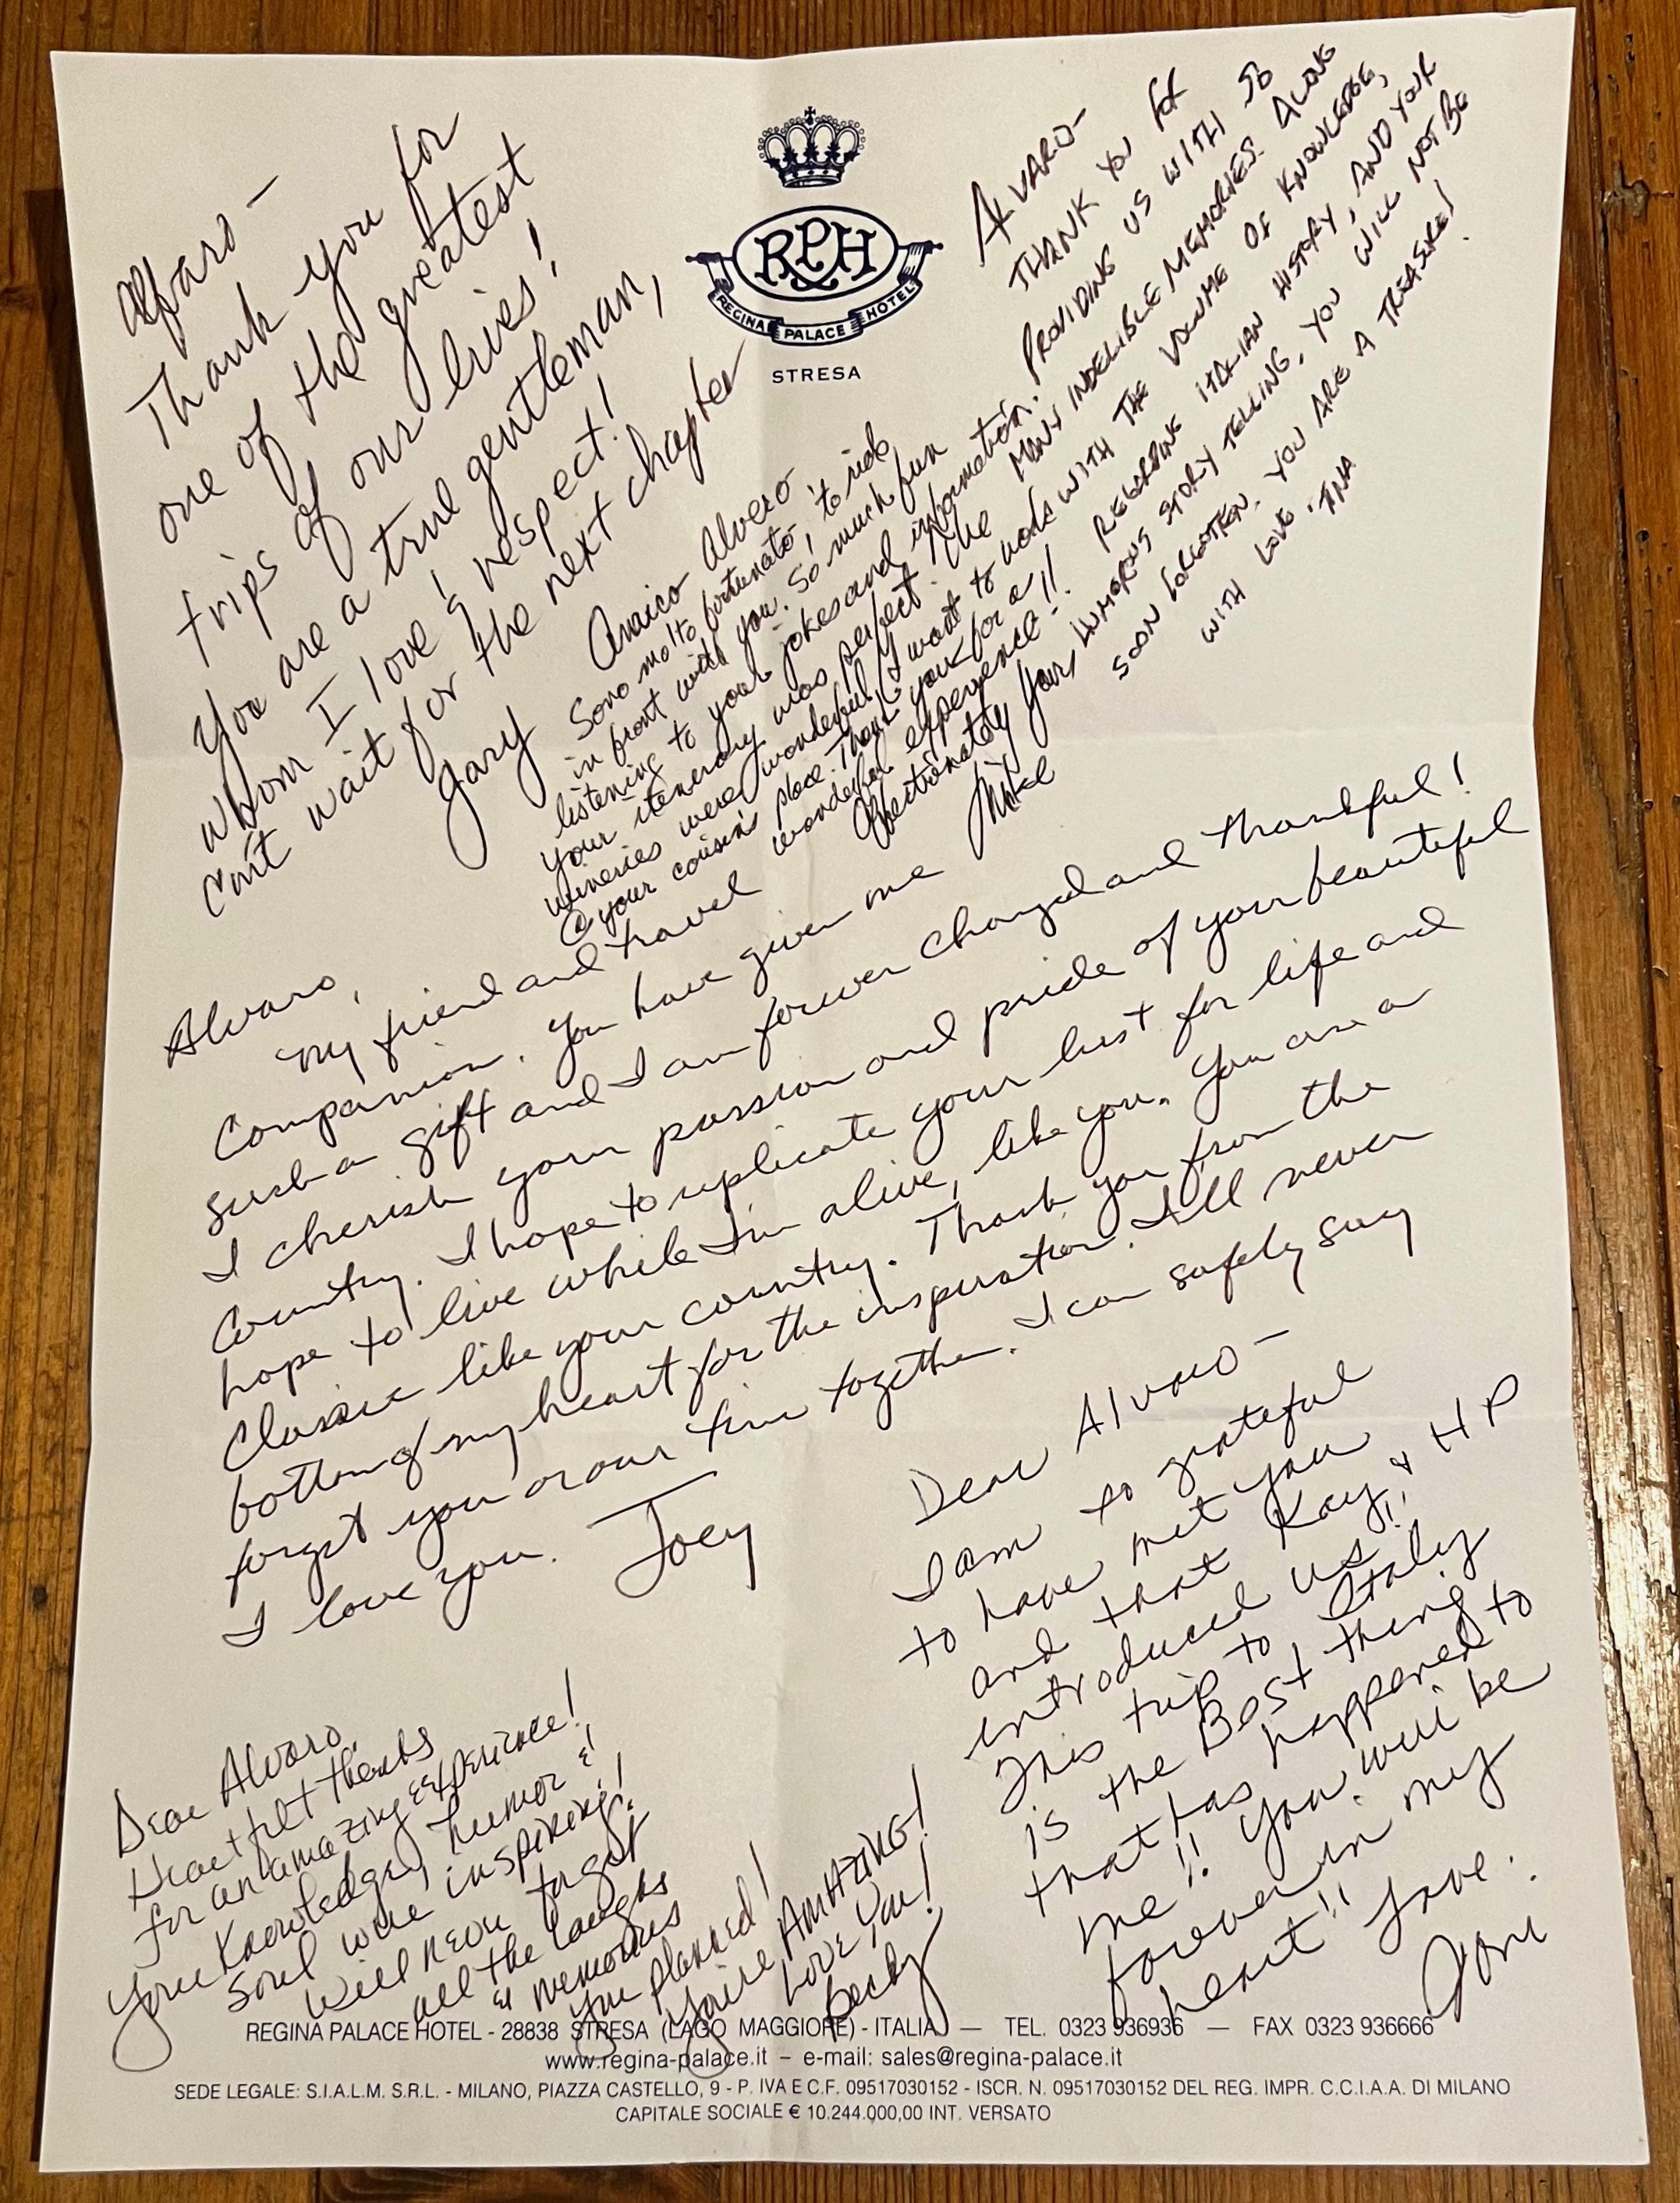 RPH
REGINA PALACE HOTEL
STRESA
Alfaro -
Thank you for
one of the greatest
trips of our lives!
You are a true gentleman,
whom I love & respect!
Can't wait for the next chapter
Gary
ALVARO-
THANK YOU FOR
PROVIDING US WITH SO
MANY INDELIBLE MEMORIES ALONG
WITH THE VOLUME OF KNOWLEDGE,
REGARDING ITALIAN HISTORY, AND YOUR
HUMOROUS STORY TELLING. YOU WILL NOT BE
SOON FORGOTTEN. YOU ARE A TREASURE!
WITH LOVE, TINA
Amico Alvero -
Sono molto fortunato, to ride
in front with you. So much fun
listening to your jokes and information.
your itenerary was perfect. The
wineries were wonderful, I want to work
@ your cousin's place. Thank you for a
wonderful experience!!
Affectionately yours,
Mike
Alvaro,
My friend and travel
Companion. You have given me
such a gift and I am forever changed and thankful!
I cherish your passion and pride of your beautiful
Country. I hope to replicate your lust for life and
hope to live while I'm alive, like you. You are a
Classic like your country. Thank you from the
bottom of my heart for the inspiration. I'll never
forget you or our time together. I can safely say
I love you. Joey
Dear Alvaro -
I am so grateful
to have met you
and that Kay & HP
introduced us!!
This trip to Italy
is the Best thing
that has happened to
me!! You will be
forever in my
heart!! Love,
Dear Alvaro,
Heartfelt thanks
for an amazing experience!
Your knowledge, humor &
soul were inspiring!
Will never forget
all the laughs
& memories
you planned!
You're AMAZING!
Love you!
Becky
REGINA PALACE HOTEL - 28838 STRESA (LAGO MAGGIORE) - ITALIA — TEL. 0323 936936 — FAX 0323 936666
www.regina-palace.it – e-mail: sales@regina-palace.it
SEDE LEGALE: S.I.A.L.M. S.R.L. - MILANO, PIAZZA CASTELLO, 9 - P. IVA E C.F. 09517030152 - ISCR. N. 09517030152 DEL REG. IMPR. C.C.I.A.A. DI MILANO
CAPITALE SOCIALE € 10.244.000,00 INT. VERSATO